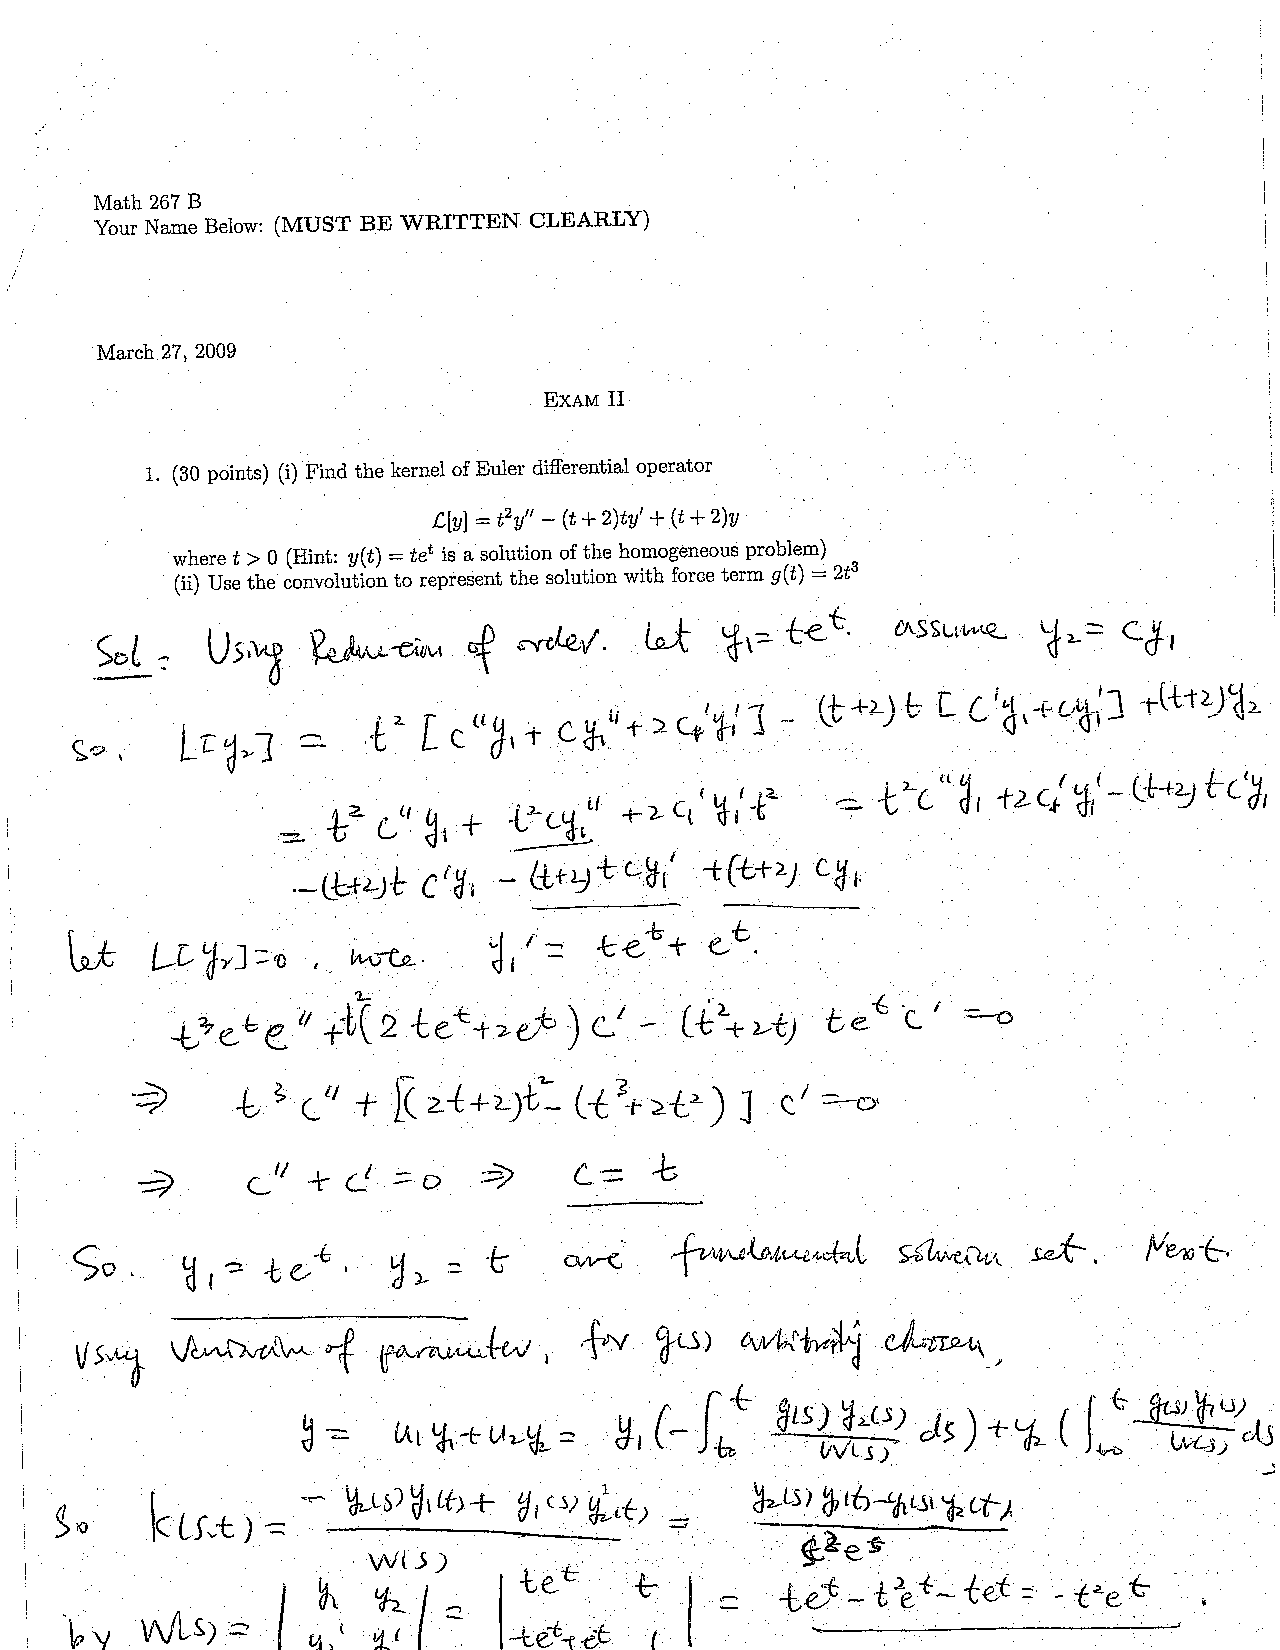 Math 267 B
Your Name Below: (MUST BE WRITTEN CLEARLY)
March 27, 2009
EXAM II
1. (30 points) (i) Find the kernel of Euler differential operator
ℒ[y] = t²y″ − (t + 2)ty′ + (t + 2)y
where t > 0 (Hint: y(t) = teᵗ is a solution of the homogeneous problem)
(ii) Use the convolution to represent the solution with force term g(t) = 2t³
Sol: Using Reduction of order. Let y₁ = teᵗ. assume y₂ = cy₁
So. L[y₂] = t² [c″y₁ + cy₁″ + 2c′y₁′] − (t+2)t [c′y₁ + cy₁′] + (t+2)y₂
= t²c″y₁ + t²cy₁″ + 2c′y₁′t² = t²c″y₁ + 2c′y₁′ − (t+2)tc′y₁
−(t+2)t c′y₁ − (t+2)tcy₁′ + (t+2) cy₁
let L[y₂]=0. note. y₁′ = teᵗ + eᵗ.
t³eᵗc″ + t²(2teᵗ+2eᵗ)c′ − (t²+2t) teᵗc′ = 0
⇒ t³c″ + [(2t+2)t² − (t³+2t²)] c′ = 0
⇒ c″ + c′ = 0 ⇒ c = t
So. y₁ = teᵗ. y₂ = t are fundamental solution set. Next
Using Variation of parameter, for g(s) arbitrarily chosen,
y = u₁y₁+u₂y₂ = y₁(−∫ₜ₀ᵗ g(s)y₂(s)/W(s) ds) + y₂(∫ₜ₀ᵗ g(s)y₁(s)/W(s) ds
So k(s,t) = −y₂(s)y₁(t) + y₁(s)y₂(t) / W(s) = y₂(s)y₁(t) − y₁(s)y₂(t) / s²eˢ
by W(s) = | y₁ y₂ | = | teᵗ t | = teᵗ − t²eᵗ − teᵗ = −t²eᵗ.
y₁′ y₂′ teᵗ+eᵗ 1